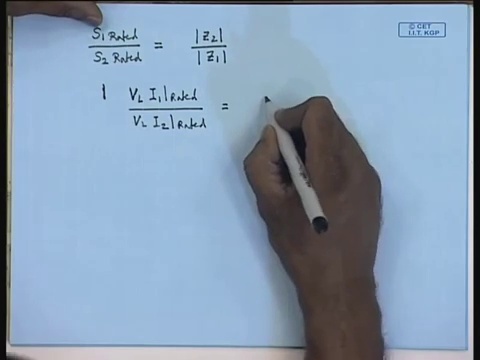 © CET
I.I.T. KGP
S1 Rated / S2 Rated = |Z2| / |Z1|
| VL I1|Rated / VL I2|Rated =